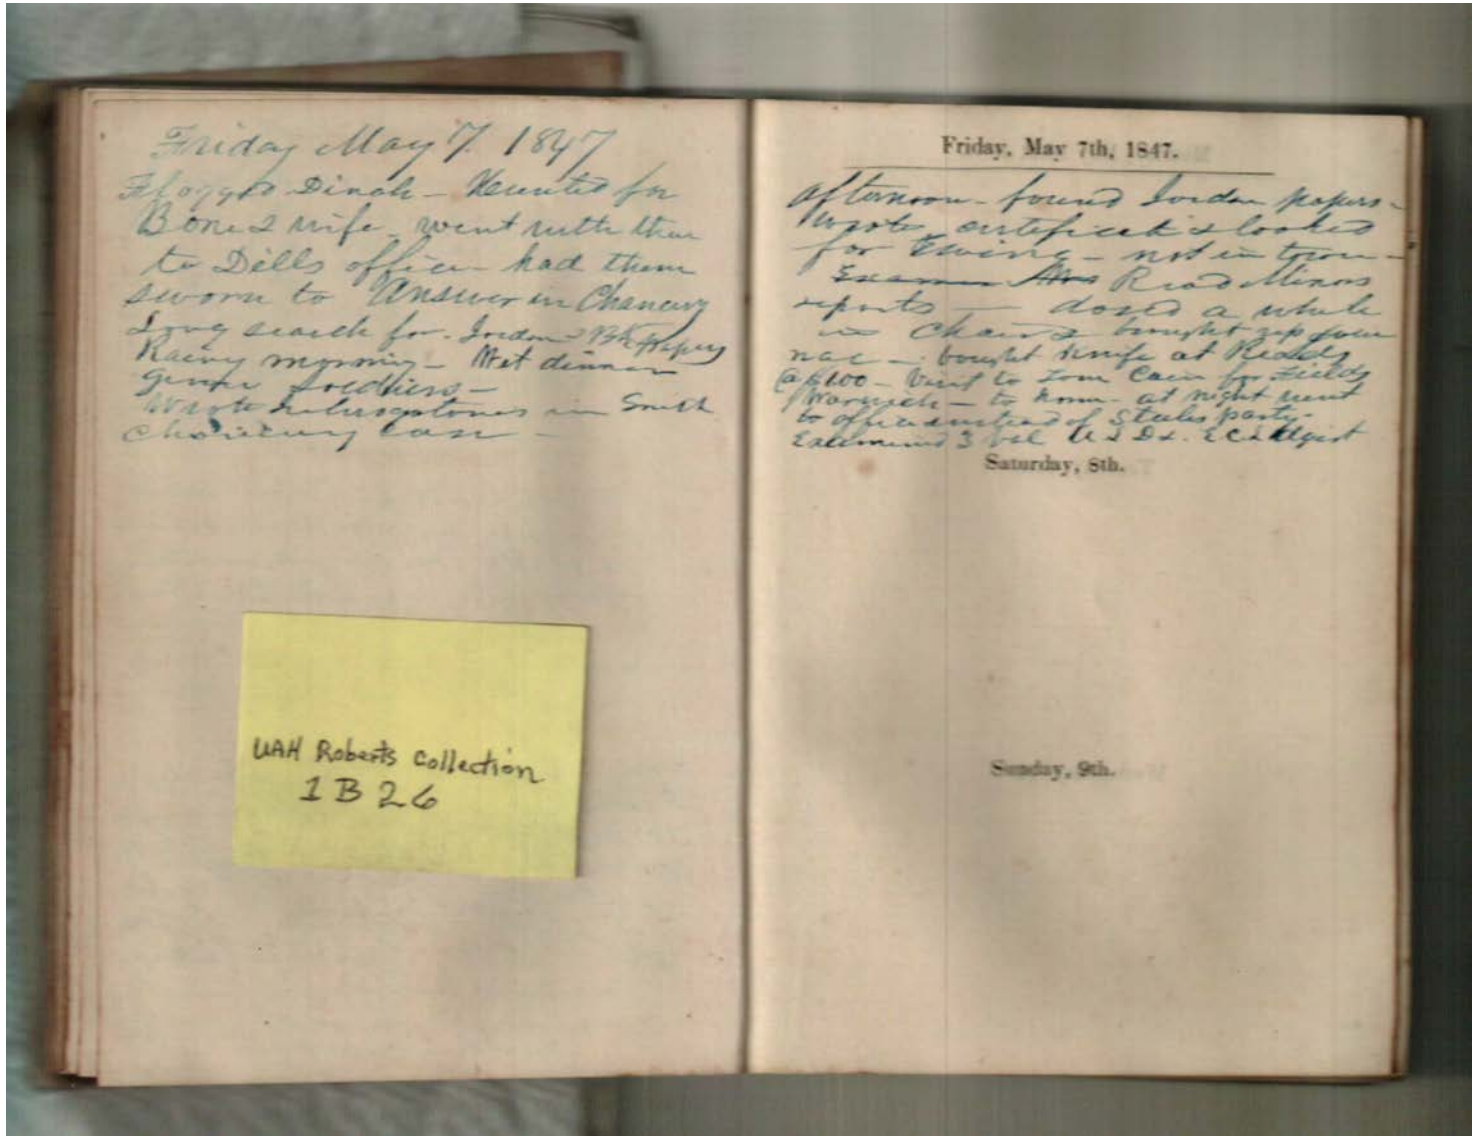 Friday May 7. 1847
Flogged Dinah - Hunted for
Bone & wife - went with them
to Dills office - had them
sworn to Answer in Chancery
Long search for Jordan papers
Rainy morning - Wet dinner
given soldiers -
Wrote in Smith
Chancery case -
UAH Roberts Collection
1B26
Friday, May 7th, 1847.
afternoon - found Jordan papers -
wrote certificate & looked
for Ewing - not in town -
Read Minors
reports - dosed a while
in chair & brought up jour
nal - bought knife at Reads
@ $1.00 - Visit to Tom Cain for Fields
Warwick - to home - at night went
to office instead of States party -
Examined 3 vol U.S. Digest
Saturday, 8th.
Sunday, 9th.